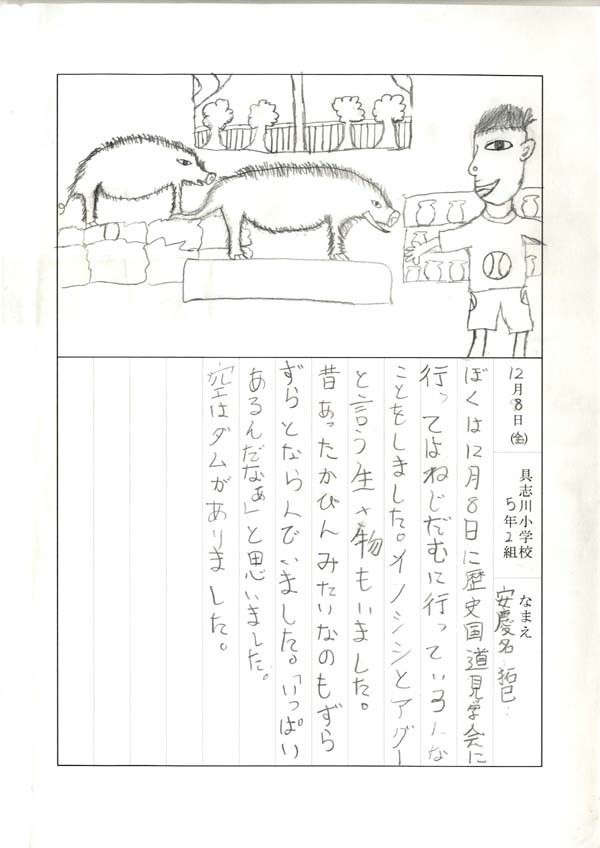 12月8日(金)
具志川小学校
5年2組
なまえ
安慶名 拓巳
ぼくは12月8日に歴史国道見学会に
行ってよねじだむに行っているんな
ことをしました。イノシシとアグー
と言う生き物もいました。
昔あったかびんみたいなのもずら
ずらとならんでいました。「いっぱい
あるんだなぁ」と思いました。
空はダムがありました。